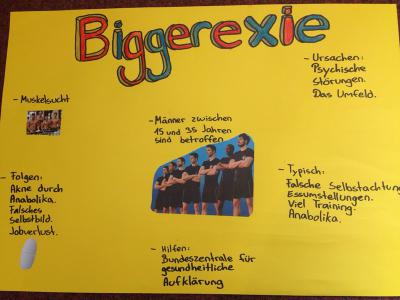 Biggerexie
- Ursachen:
Psychische
Störungen.
Das Umfeld.
- Muskelsucht
- Männer zwischen
15 und 35 Jahren
sind betroffen
- Folgen:
Akne durch
Anabolika.
Falsches
Selbstbild.
Jobverlust.
- Typisch:
Falsche Selbstachtung
Essumstellungen.
Viel Training.
Anabolika.
- Hilfen:
Bundeszentrale für
gesundheitliche
Aufklärung